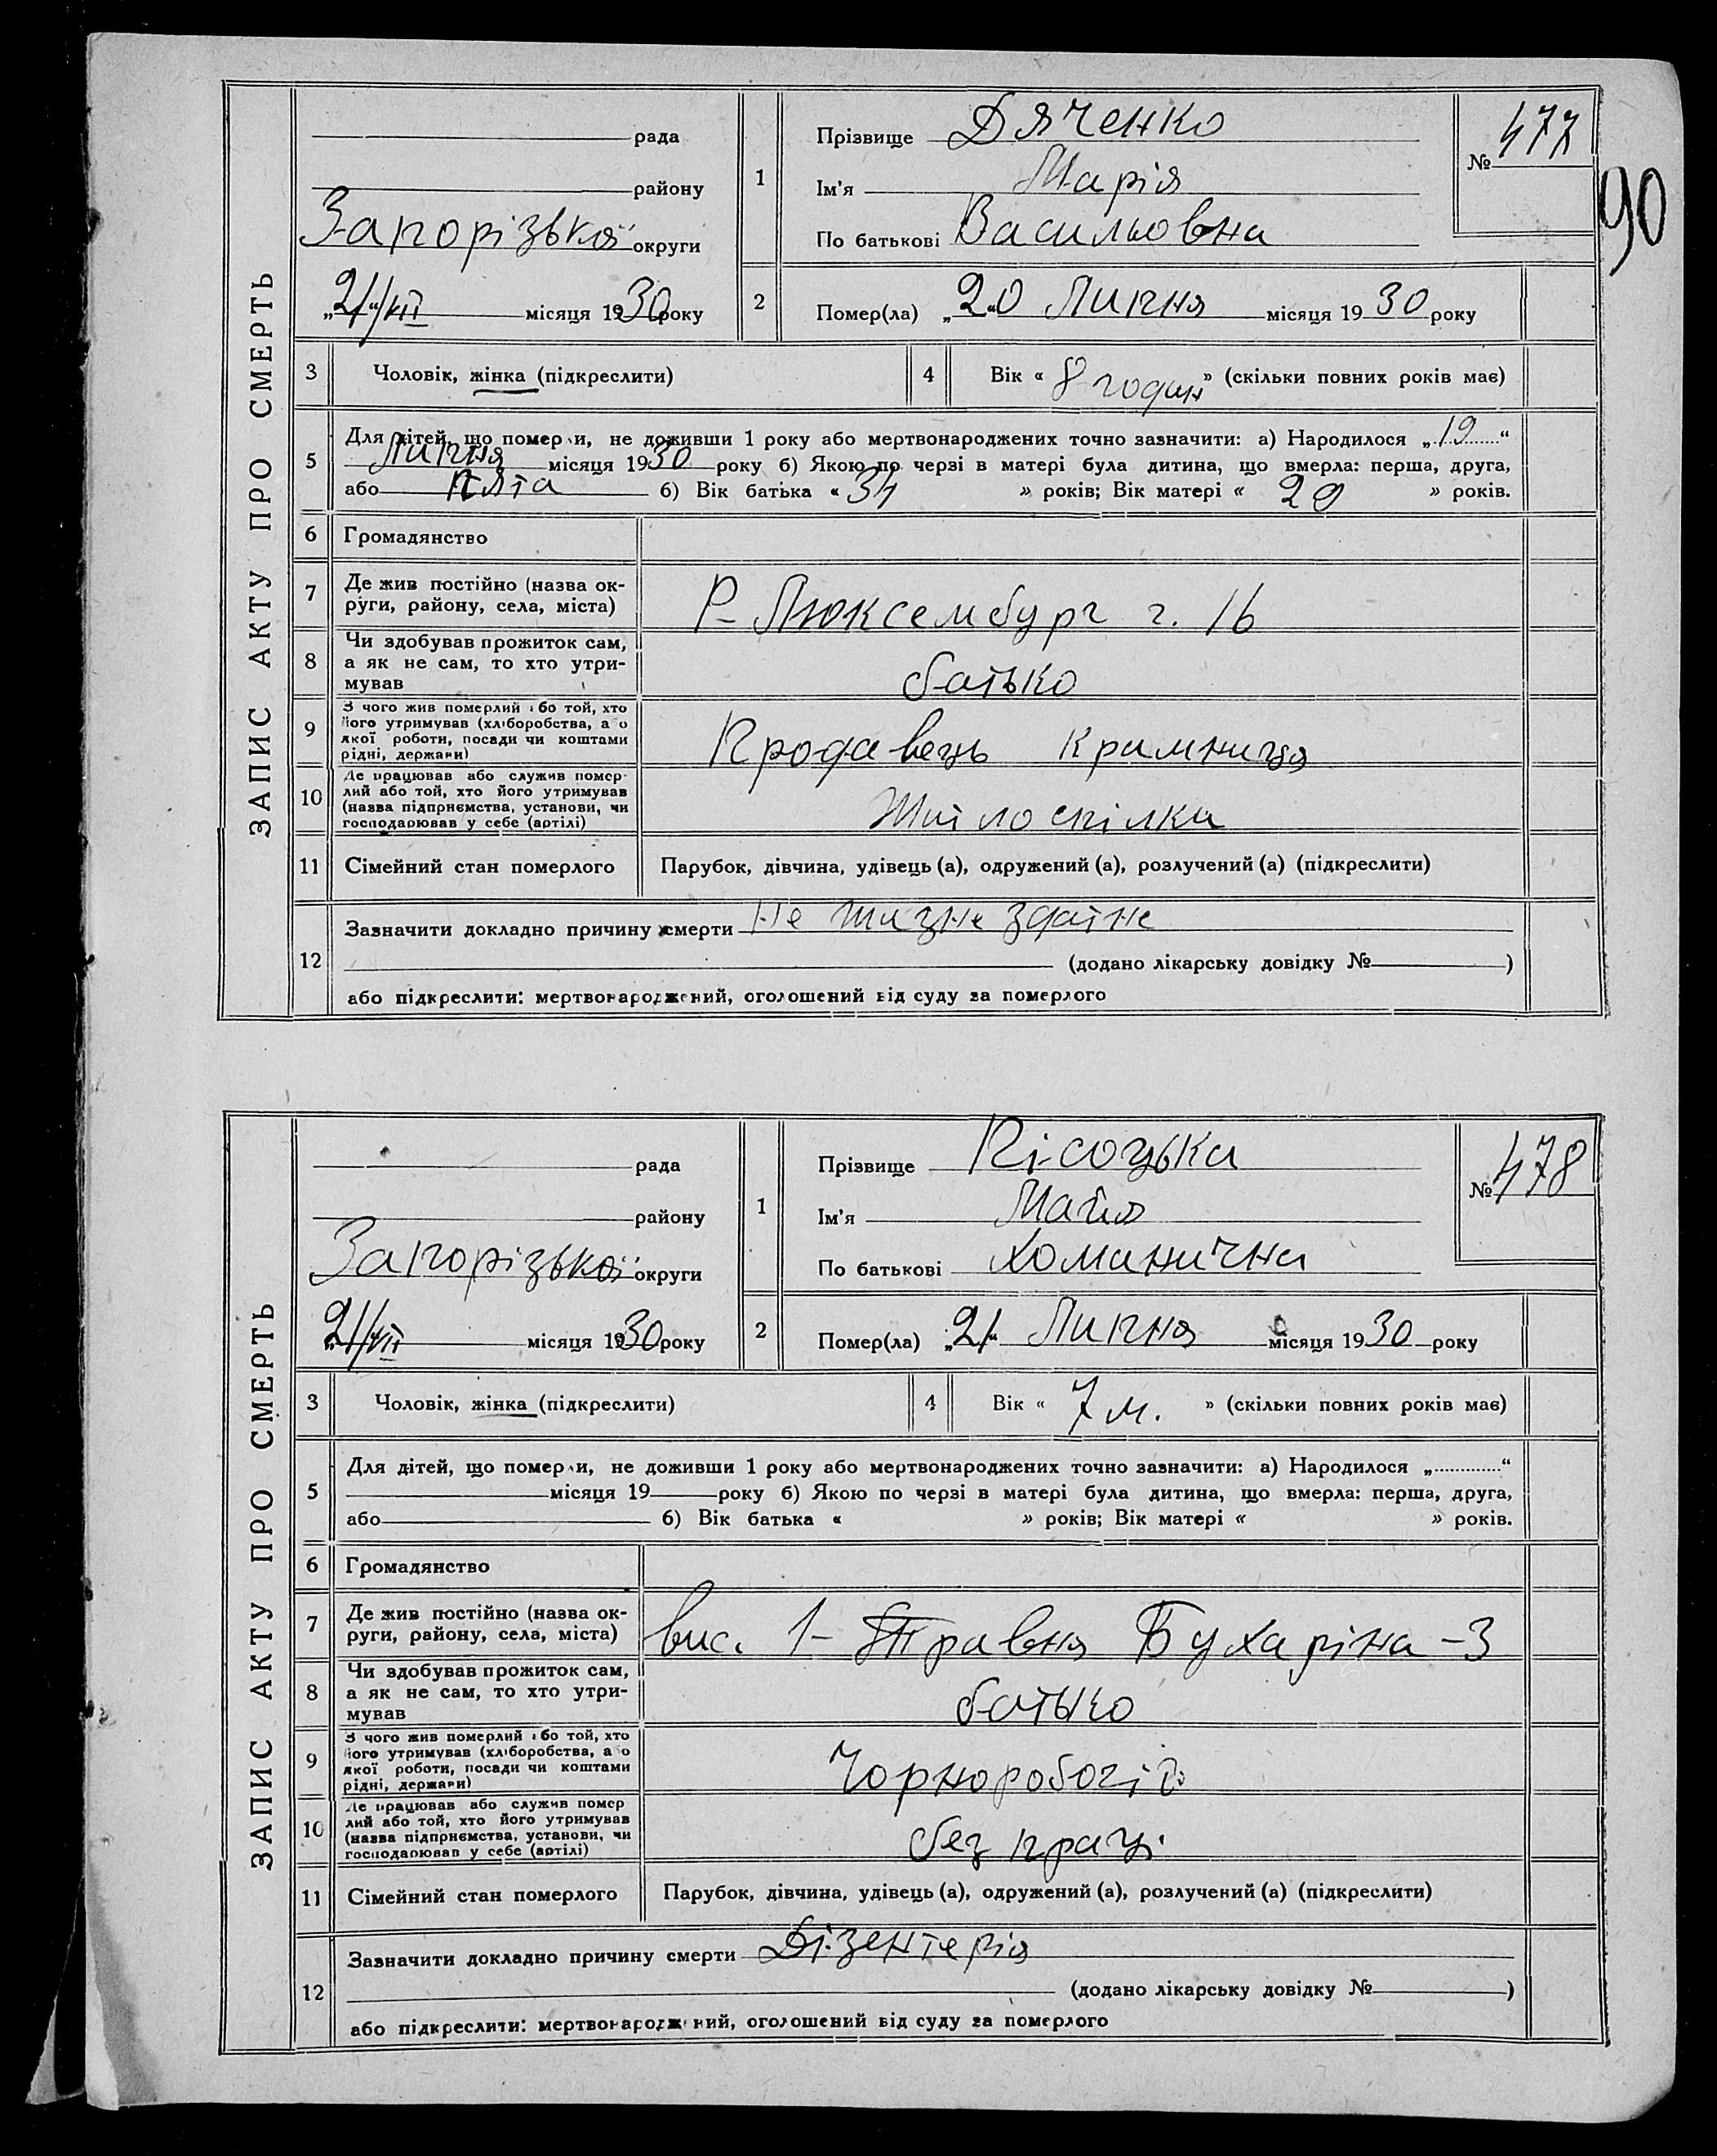 90
ЗАПИС АКТУ ПРО СМЕРТЬ
рада
району
Запорізької округи
„21“/VII місяця 1930 року
1
Прізвище Дяченко
Ім'я Марія
По батькові Васильовна
№ 477
2
Помер(ла) „20“ Липня місяця 1930 року
3
Чоловік, жінка (підкреслити)
4
Вік « 8 годин » (скільки повних років має)
5
Для дітей, що померли, не доживши 1 року або мертвонароджених точно зазначити: а) Народилося „19“
Липня місяця 1930 року б) Якою по черзі в матері була дитина, що вмерла: перша, друга,
або пята б) Вік батька « 34 » років; Вік матері « 29 » років.
6
Громадянство
7
Де жив постійно (назва ок-
руги, району, села, міста)
Р-Люксембург г. 16
8
Чи здобував прожиток сам,
а як не сам, то хто утри-
мував
батько
9
З чого жив померлий або той, хто
його утримував (хліборобства, або
якої роботи, посади чи коштами
рідні, держави)
Продавець крамниця
10
Де працював або служив помер-
лий або той, хто його утримував
(назва підприємства, установи, чи
господарював у себе (артілі)
Житлоспілка
11
Сімейний стан померлого
Парубок, дівчина, удівець (а), одружений (а), розлучений (а) (підкреслити)
12
Зазначити докладно причину смерти Не жизне здатне
(додано лікарську довідку № )
або підкреслити: мертвонароджений, оголошений від суду за померлого
ЗАПИС АКТУ ПРО СМЕРТЬ
рада
району
Запорізької округи
„21“/VII місяця 1930 року
1
Прізвище Пісоцька
Ім'я Майя
По батькові Хоманична
№ 478
2
Помер(ла) „21“ Липня місяця 1930 року
3
Чоловік, жінка (підкреслити)
4
Вік « 7 м. » (скільки повних років має)
5
Для дітей, що померли, не доживши 1 року або мертвонароджених точно зазначити: а) Народилося „ “
місяця 19 року б) Якою по черзі в матері була дитина, що вмерла: перша, друга,
або б) Вік батька « » років; Вік матері « » років.
6
Громадянство
7
Де жив постійно (назва ок-
руги, району, села, міста)
вис. 1-Травня Бухаріна-3
8
Чи здобував прожиток сам,
а як не сам, то хто утри-
мував
батько
9
З чого жив померлий або той, хто
його утримував (хліборобства, або
якої роботи, посади чи коштами
рідні, держави)
Чорноробочій
10
Де працював або служив помер
лий або той, хто його утримував
(назва підприємства, установи, чи
господарював у себе (артілі)
без праці
11
Сімейний стан померлого
Парубок, дівчина, удівець (а), одружений (а), розлучений (а) (підкреслити)
12
Зазначити докладно причину смерти Дізентерія
(додано лікарську довідку № )
або підкреслити: мертвонароджений, оголошений від суду за померлого